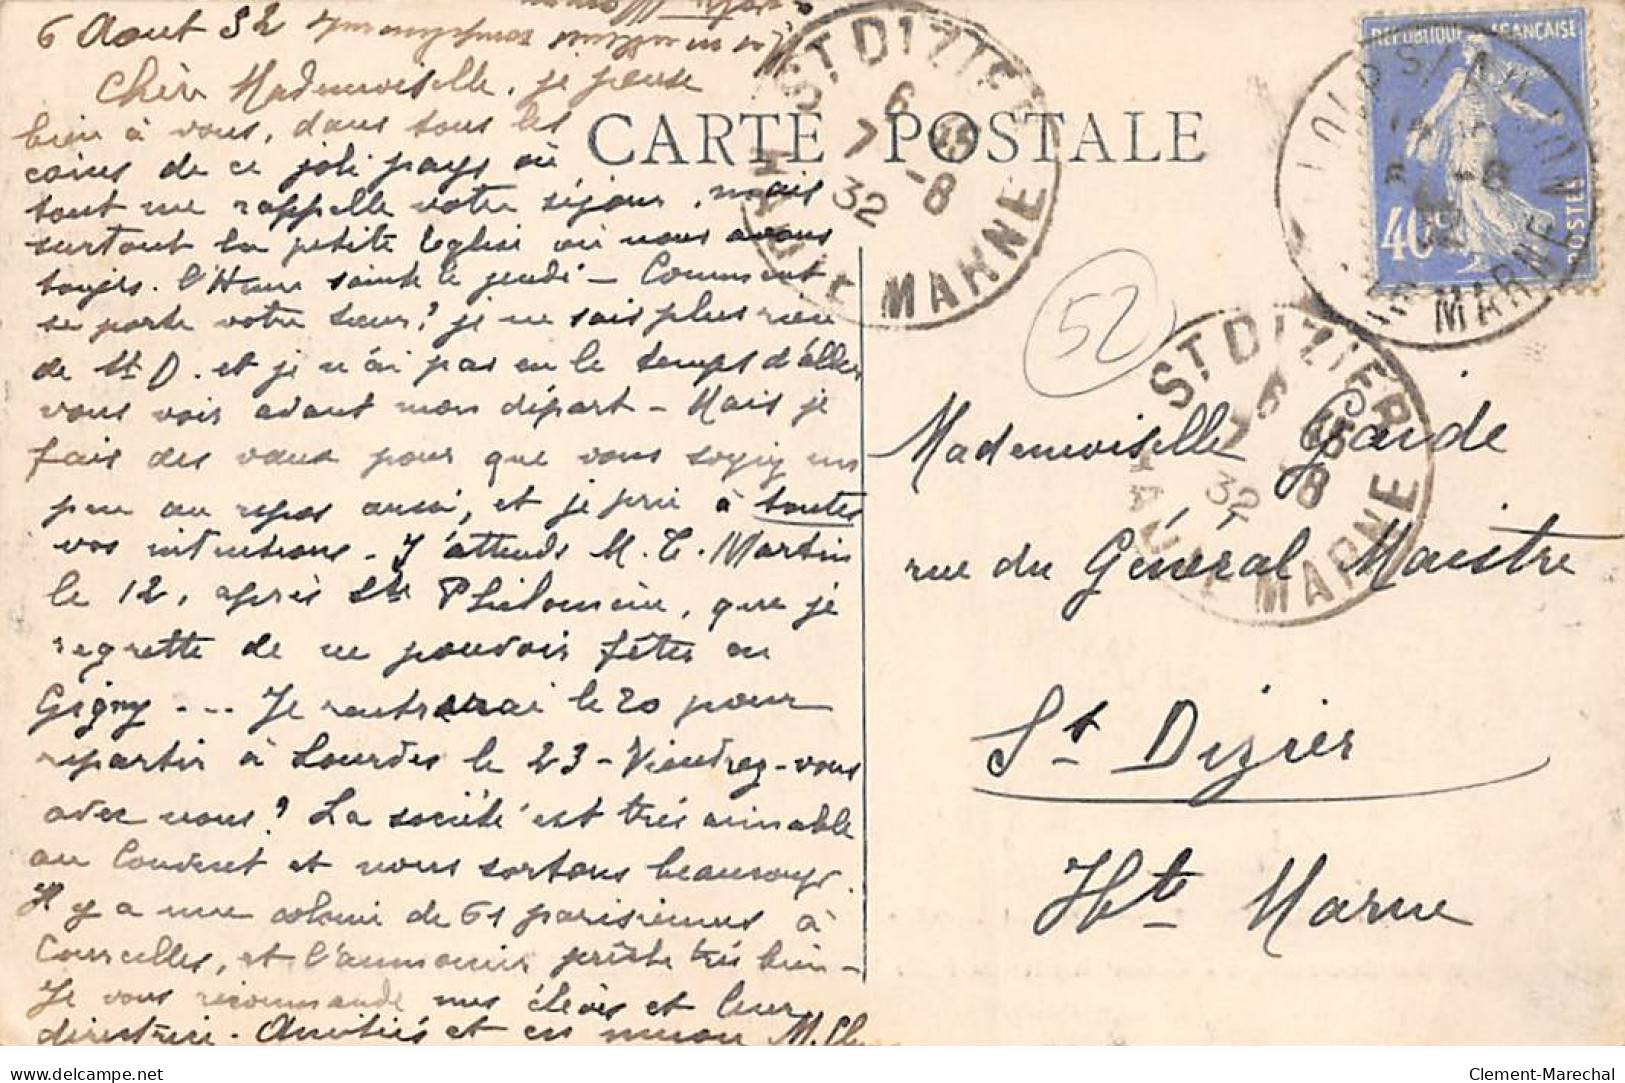 6 Aout 32
Chère Mademoiselle, je pense
bien à vous, dans tous les
coins de ce joli pays où
tout me rappelle votre séjour, mais
surtout la petite Eglise où nous avons
toujrs. l'Heure sainte le jeudi - Comment
se porte votre sœur? je ne sais plus rien
de St D. et je n'ai pas eu le temps d'aller
vous voir avant mon départ - Mais je
fais des vœux pour que vous soyiez un
peu au repos aussi, et je prie à toutes
vos intentions. J'attends M. T. Martin
le 12, après Ste Philomène, que je
regrette de ne pouvoir fêter en
Gigny ... Je rentrerai le 20 pour
repartir à Lourdes le 23 - Viendrez-vous
avec nous? La société est très aimable
au Couvent et nous sortons beaucoup.
Il y a une colonie de 61 parisiennes à
Courcelles, et l'aumonier prêche très bien -
Je vous recommande mes élèves et leur
directrice. Amitiés et en union M.
CARTE POSTALE
ST DIZIER
6
-8
32
HAUTE MARNE
REPUBLIQUE FRANÇAISE
40c
POSTES
MARNE
52
ST DIZIER
6
-8
32
HAUTE MARNE
Mademoiselle Gaide
rue du Général Maistre
St Dizier
Hte Marne
www.delcampe.net
Clement-Marechal